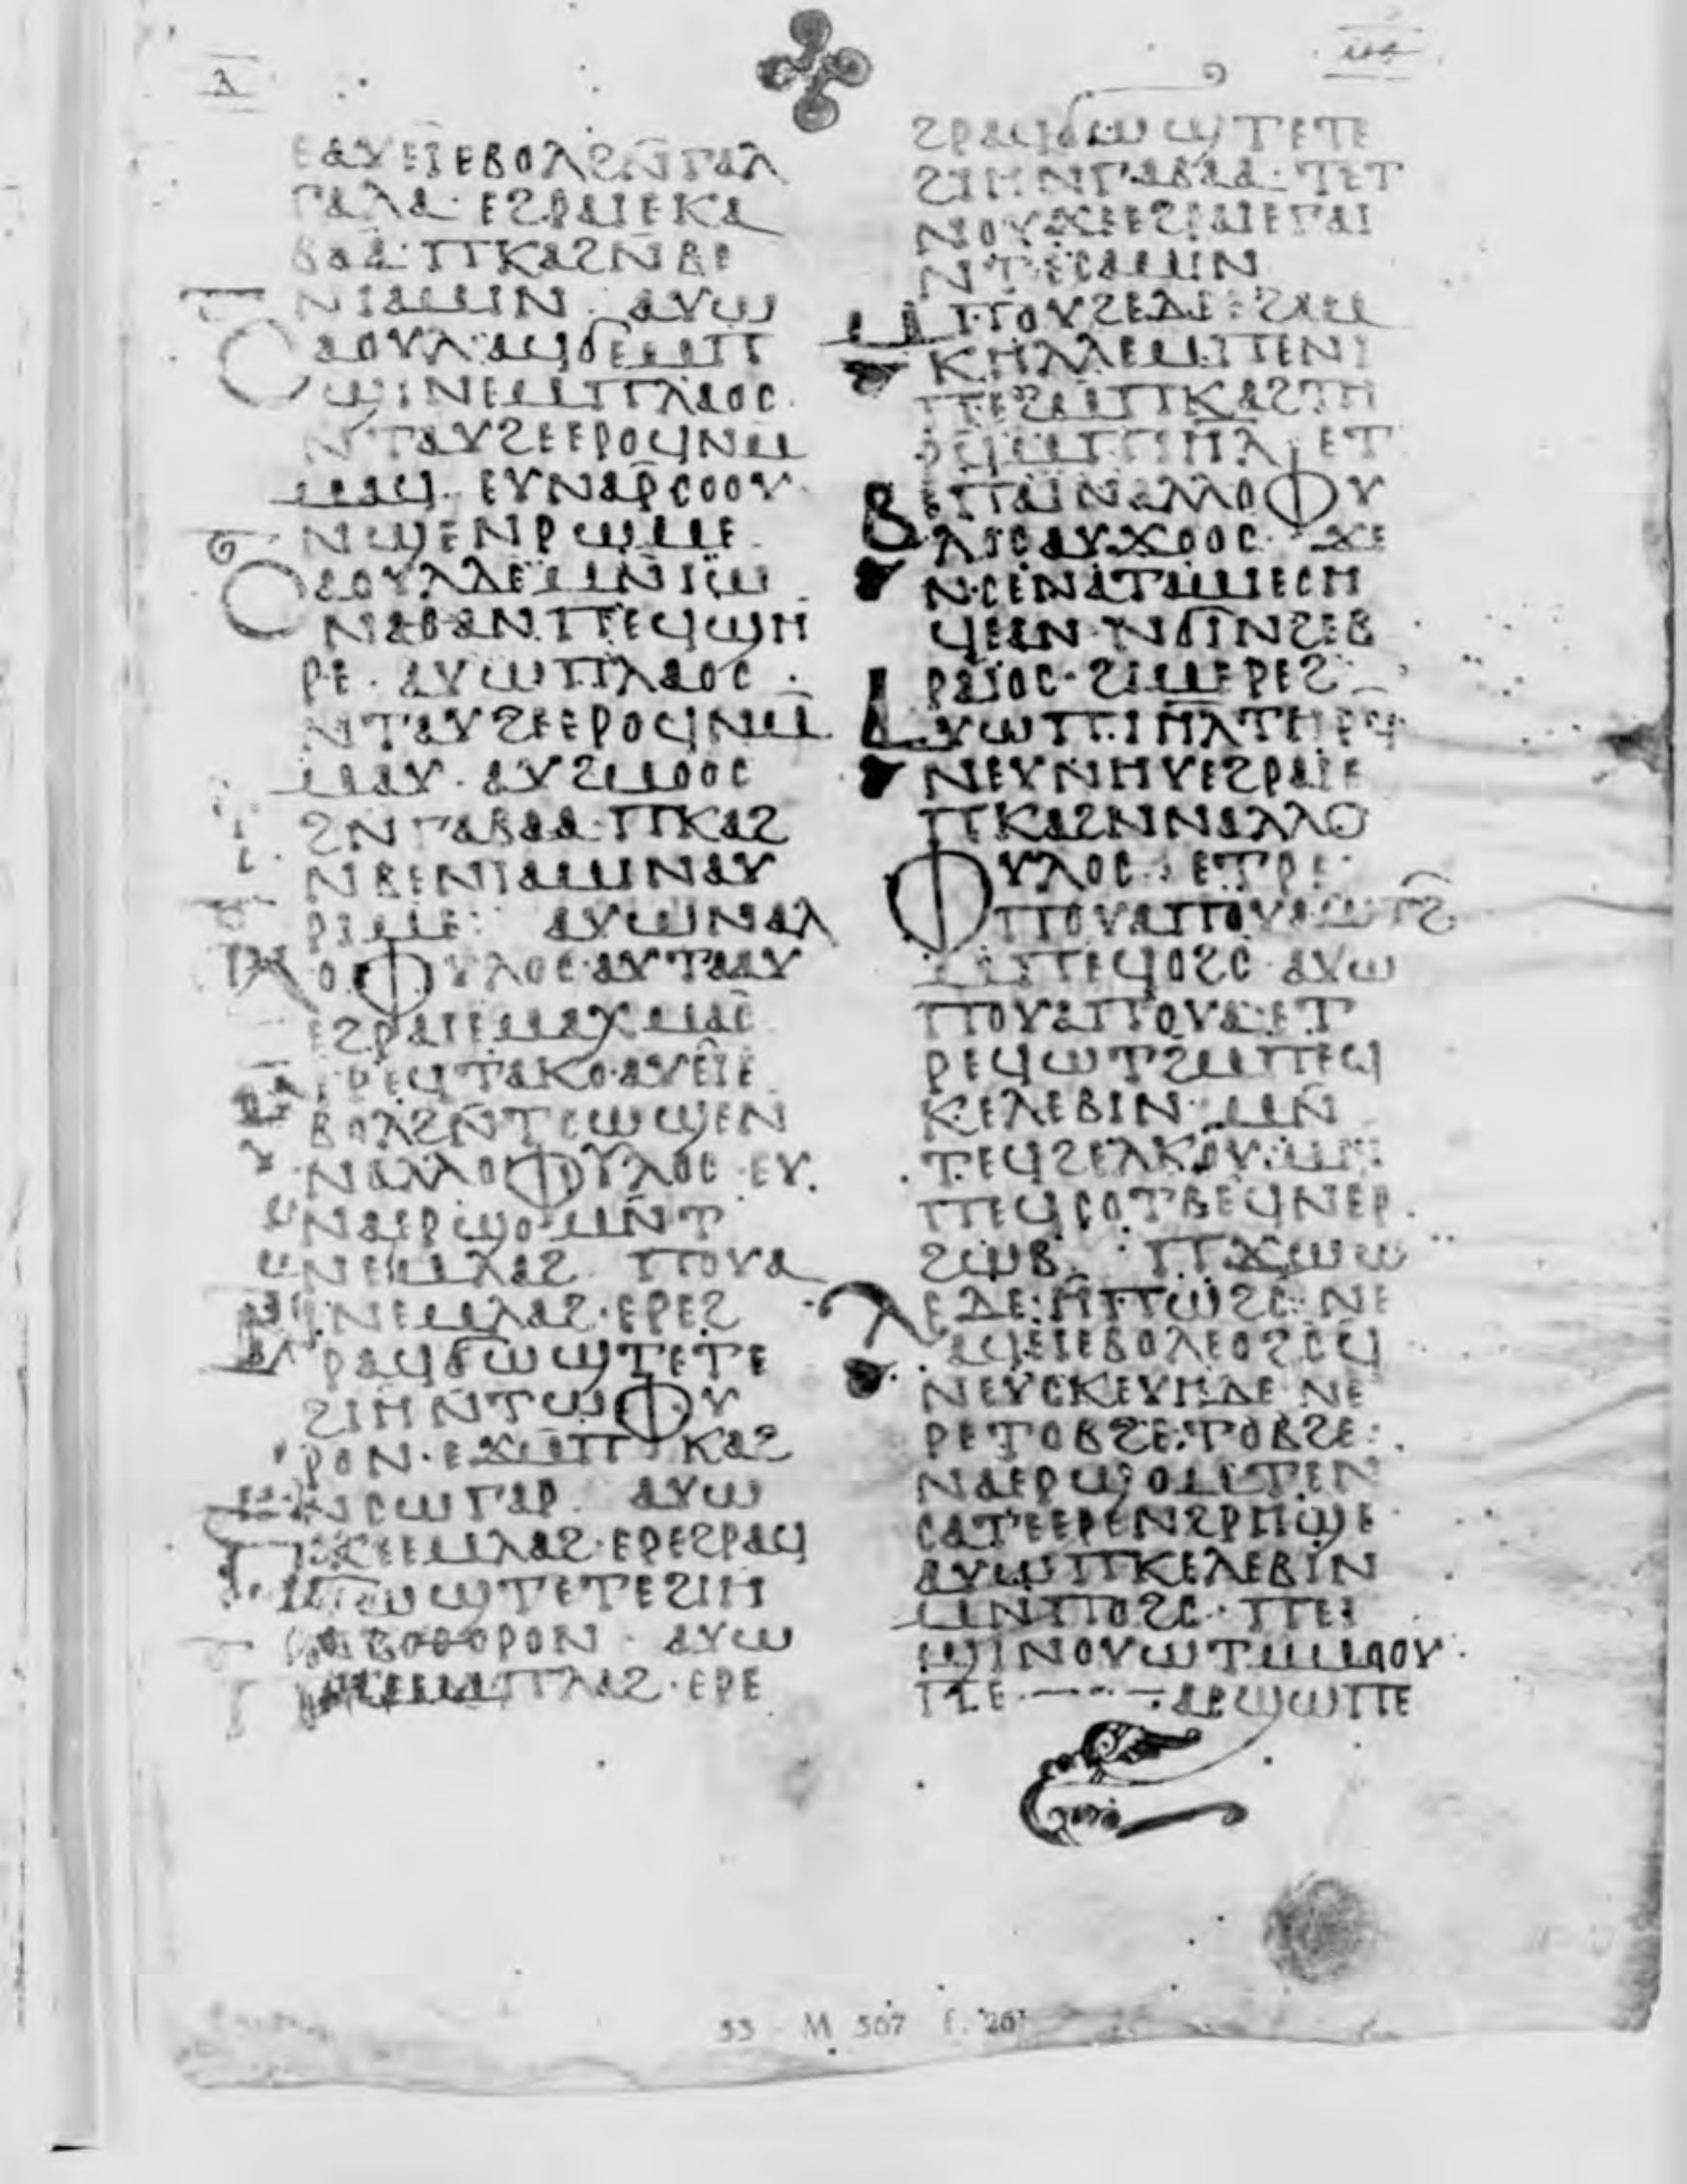 ⲗ
ⲉⲁⲩⲉⲓⲉⲃⲟⲗϩⲛⲅⲁⲗ
ⲅⲁⲗⲁ· ⲉϩⲣⲁⲓⲉⲕⲁ
ⲃⲁⲁ· ⲡⲕⲁϩⲛⲃⲉ
ⲛⲓⲁⲙⲓⲛ· ⲁⲩⲱ
ⲥⲁⲟⲩⲗ·ⲁϥϭⲉⲙⲡ
ϣⲓⲛⲉⲙⲡⲗⲁⲟⲥ·
ⲛⲧⲁⲩϩⲉⲉⲣⲟϥⲛⲙ
ⲙⲁϥ· ⲉⲩⲛⲁⲣⲥⲟⲟⲩ
ⲛϣⲉⲛⲣⲱⲙⲉ·
ⲥⲁⲟⲩⲗⲇⲉⲙⲛⲓⲱ
ⲛⲁⲑⲁⲛ·ⲡⲉϥϣⲏ
ⲣⲉ· ⲁⲩⲱⲡⲗⲁⲟⲥ·
ⲛⲧⲁⲩϩⲉⲉⲣⲟϥⲛⲙ
ⲙⲁⲩ· ⲁⲩϩⲙⲟⲟⲥ
ϩⲛⲅⲁⲃⲁⲁ·ⲡⲕⲁϩ
ⲛⲃⲉⲛⲓⲁⲙⲓⲛⲁⲩ
ⲣⲓⲙⲉ: ⲁⲩⲱⲛⲁⲗ
ⲗⲟⲫⲩⲗⲟⲥ·ⲁⲩⲧⲁⲁⲩ
ⲉϩⲣⲁⲓⲉⲙⲁⲭⲙⲁⲥ
ⲣⲉϥⲧⲁⲕⲟ·ⲁⲩⲉⲓⲉ
ⲃⲟⲗϩⲛⲧⲥⲱϣⲉⲛ
ⲛⲁⲗⲗⲟⲫⲩⲗⲟⲥ·ⲉⲩ
ⲛⲁⲉⲣϣⲟⲙⲛⲧ
ⲛⲉⲙⲗⲁϩ ⲡⲟⲩⲁ
ⲛⲉⲙⲗⲁϩ·ⲉⲣⲉϩ
ⲣⲁϥϭⲱϣⲧⲉⲧⲉ
ϩⲓⲏⲛⲧⲱⲫⲩ
ⲣⲟⲛ·ⲉϫⲙⲡⲕⲁϩ
ⲛⲥⲱⲅⲁⲣ· ⲁⲩⲱ
ⲡⲕⲉⲙⲗⲁϩ·ⲉⲣⲉϩⲣⲁϥ
ϭⲱϣⲧⲉⲧⲉϩⲓⲏ
ⲃⲟⲑⲟⲣⲟⲛ· ⲁⲩⲱ
ⲡⲗⲁϩ·ⲉⲣⲉ
ϩⲣⲁϥϭⲱϣⲧⲉⲧⲉ
ϩⲓⲏⲛⲅⲁⲃⲁⲁ· ⲧⲉⲧ
ⲛⲟⲩϫⲉⲉϩⲣⲁⲓⲉⲅⲁⲓ
ⲛⲧⲉⲥⲁⲙⲓⲛ
ⲙⲡⲟⲩϩⲉⲇⲉⲉϩⲁⲙ
ⲕⲏⲗⲗⲉⲙⲡⲉⲛⲓ
ⲡⲉϩⲙⲡⲕⲁϩⲧⲏ
ⲣϥⲙⲡⲓⲏⲗ· ⲉⲧ
ⲃⲉⲡⲁⲓⲛⲁⲗⲗⲟⲫⲩ
ⲗⲟⲥⲁⲩϫⲟⲟⲥ· ϫⲉ
ⲛⲥⲉⲛⲁⲧⲁⲙⲓⲉⲥⲏ
ϥⲉⲁⲛ·ⲛϭⲓⲛϩⲉⲃ
ⲣⲁⲓⲟⲥ·ϩⲓⲙⲉⲣⲉϩ·
ⲁⲩⲱⲡⲓⲏⲗⲧⲏⲣϥ
ⲛⲉⲩⲛⲏⲩⲉϩⲣⲁⲓⲉ
ⲡⲕⲁϩⲛⲛⲁⲗⲗⲟ
ⲫⲩⲗⲟⲥ· ⲉⲧⲣⲉ
ⲡⲟⲩⲁⲡⲟⲩⲁⲱⲧϩ
ⲙⲡⲉϥⲟϩⲥ·ⲁⲩⲱ
ⲡⲟⲩⲁⲡⲟⲩⲁ·ⲉⲧ
ⲣⲉϥⲱⲧϩⲙⲡⲉϥ
ⲕⲉⲗⲉⲃⲓⲛ· ⲙⲛ
ⲧⲉϥϩⲉⲗⲕⲟⲩ·ⲙⲛ
ⲡⲉϥⲥⲟⲧⲃⲉϥⲛⲉⲣ
ϩⲱⲃ· ⲡϫⲱⲱ
ⲗⲉⲇⲉ·ⲙⲡⲱϩⲥ·ⲛⲉ
ⲁϥⲉⲓⲉⲃⲟⲗⲉⲟϩⲥϥ
ⲛⲉⲩⲥⲕⲉⲩⲏⲇⲉ·ⲛⲉ
ⲣⲉⲧⲟⲃϩⲉ·ⲧⲟⲃϩⲉ·
ⲛⲁⲉⲣϣⲟⲙⲧⲉⲛ
ⲥⲁⲧⲉⲉⲣⲉⲛϩⲣⲏϣⲉ·
ⲁⲩⲱⲡⲕⲉⲗⲉⲃⲓⲛ
ⲙⲛⲡⲟϩⲥ· ⲡⲉⲓ
ϣⲓⲛⲟⲩⲱⲧⲙⲙⲟⲟⲩ·
ⲡⲉ·—··—·ⲁⲥϣⲱⲡⲉ
33 M 567 f. 26